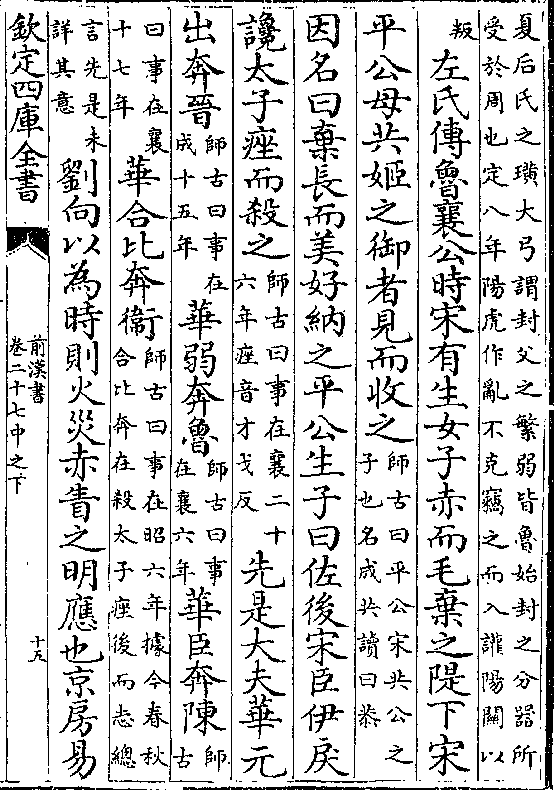 夏后氏之璜大弓謂封父之繁弱皆魯始封之分器所
受於周也定八年陽虎作亂不克竊之而入讙陽關以
叛
左氏傳魯襄公時宋有生女子赤而毛棄之隄下宋
平公母共姬之御者見而收之師古曰平公宋共公之
子也名成共讀曰恭
因名曰棄長而美好納之平公生子曰佐後宋臣伊戾
讒太子痤而殺之師古曰事在襄二十
六年痤音才戈反
先是大夫華元
出奔晉師古曰事在
成十五年
華弱奔魯師古曰事
在襄六年
華臣奔陳師古
曰事在襄
十七年
華合比奔衞師古曰事在昭六年據今春秋
合比奔在殺太子痤後而志總
言先是未
詳其意
劉向以為時則火災赤眚之明應也京房易
欽定四庫全書
前漢書
卷二十七中之下
十五